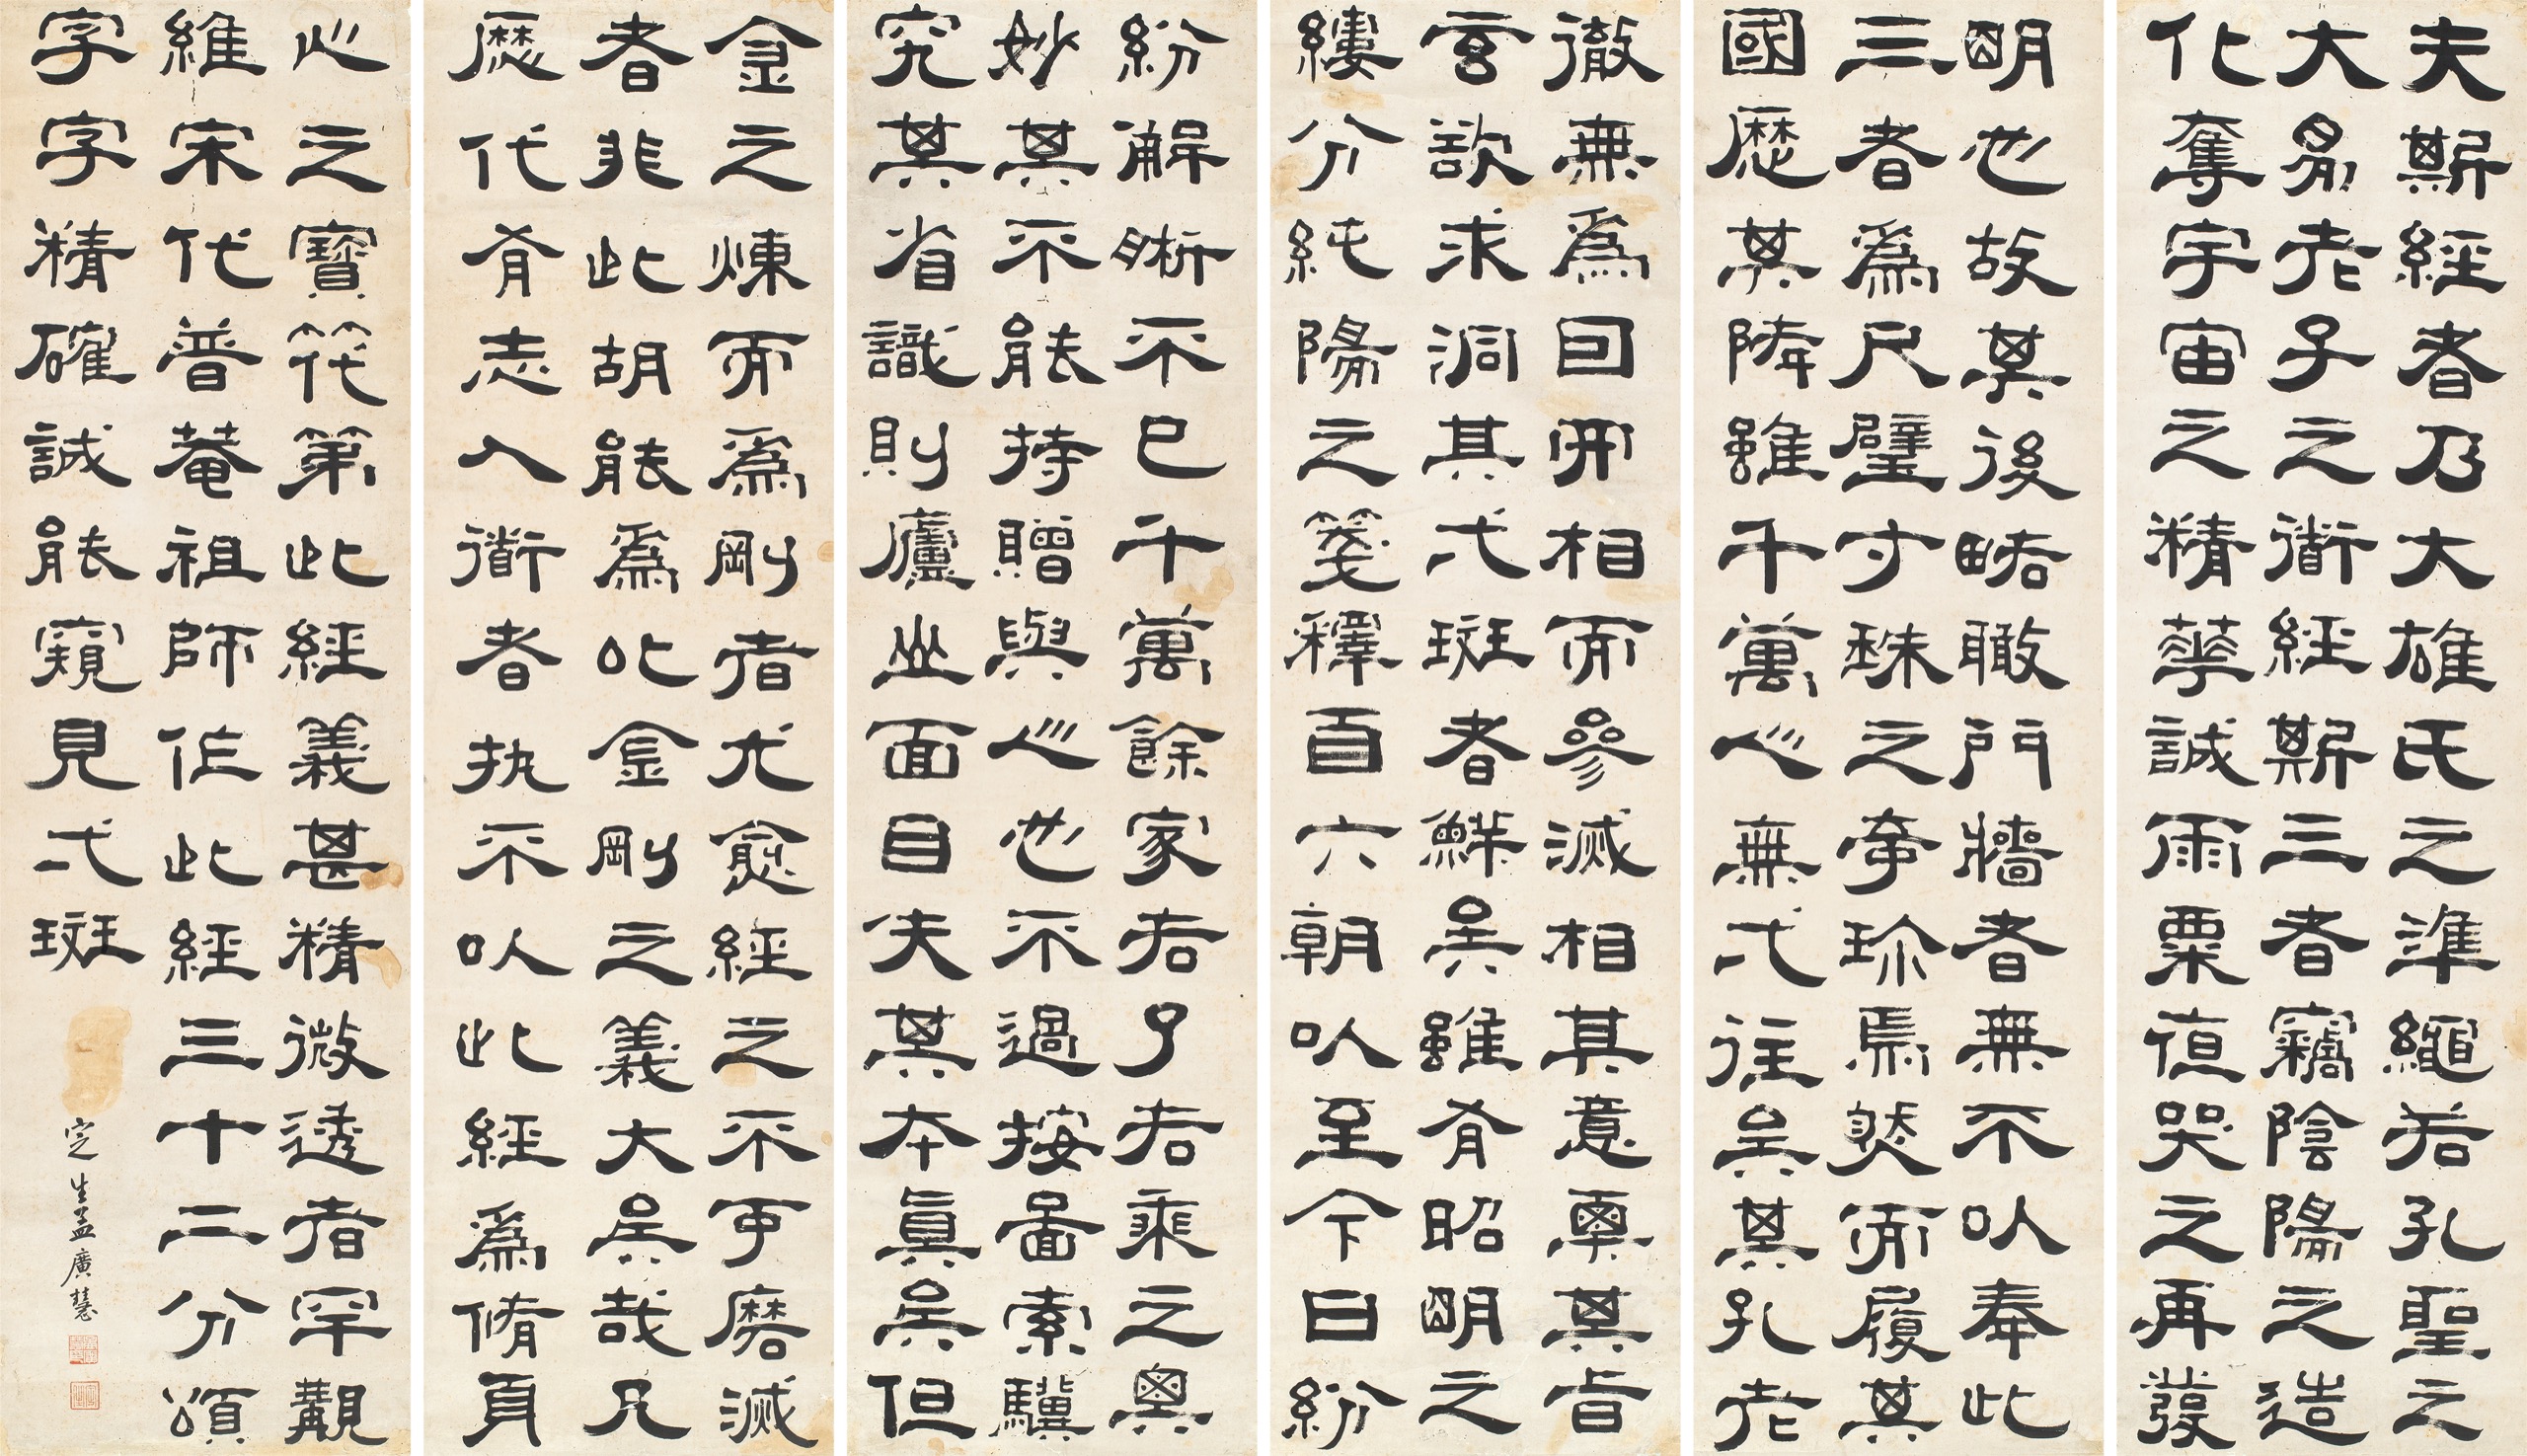 夫斯經者乃大雄氏之準繩若孔聖之
大易老子之衜經斯三者竊陰陽之造
化奪宇宙之精華誠雨粟哭之再發
明也故其後略瞰門牆者無不以奉此
三者為尺璧寸珠之希珍焉然而履其
國歷其隣雖千萬心無弌往矣其孔老
徹無為因冊相而參滅相其意稟其旨
玄欲求洞其弌斑者鮮矣雖有昭明之
縷分純陽之箋釋自六朝以至今日紛
紛解晰不已千萬餘家若了若乘之奧
妙其不能持贈與心也不過按圖索驥
究其省識則廬山面目失其本眞矣但
金之煉而為剛者尤愈經之不可磨滅
者非此胡能為叱金剛之義大矣哉凡
歷代有志入衜者孰不以此經為脩
心之寶筏第此經義甚精微透者罕覯
維宋代普菴祖師作此經三十二分頌
字字精確誠能窺見弌斑
定生孟廣慧